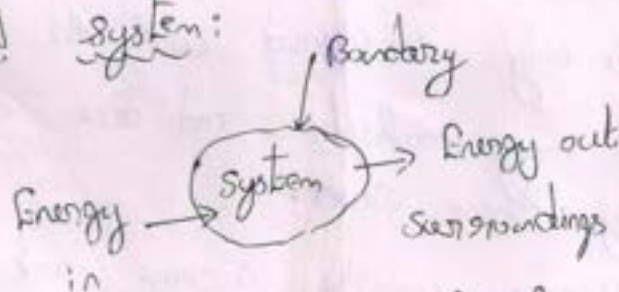 System:
Boundary
Energy out
System
Energy
in
Surroundings